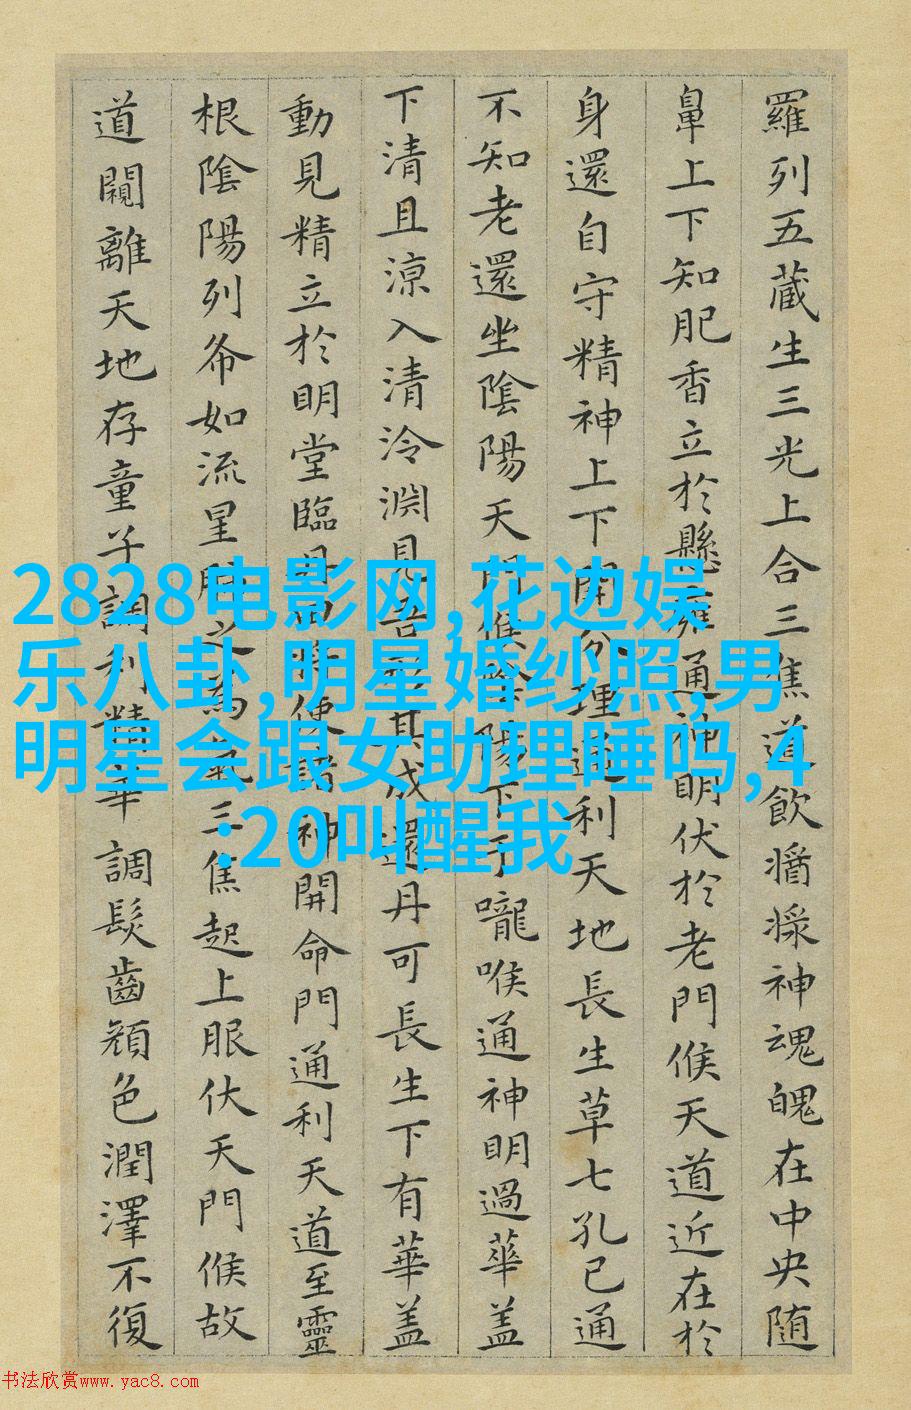 羅列五藏生三光上合三焦道飲醬漿神魂魄在中央随
鼻上下知肥香立於懸雍通神明伏於老門候天道近在於
身還自守精神上下開分理通利天地長生草七孔已通
不知老還坐陰陽天門候陰陽下于嚨喉通神明過華盖
下清且涼入清泠淵見吾形其成還丹可長生下有華盖
動見精立於明堂臨丹田將使諸神開命門通利天道至靈
根陰陽列布如流星肺之為氣三焦起上服伏天門候故
道闚離天地存童子調利精華調髮齒顏色潤澤不復
2828电影网,花边娱
乐八卦,明星婚纱照,男
明星会跟女助理睡吗,4
:20叫醒我
书法欣赏www.yac8.com